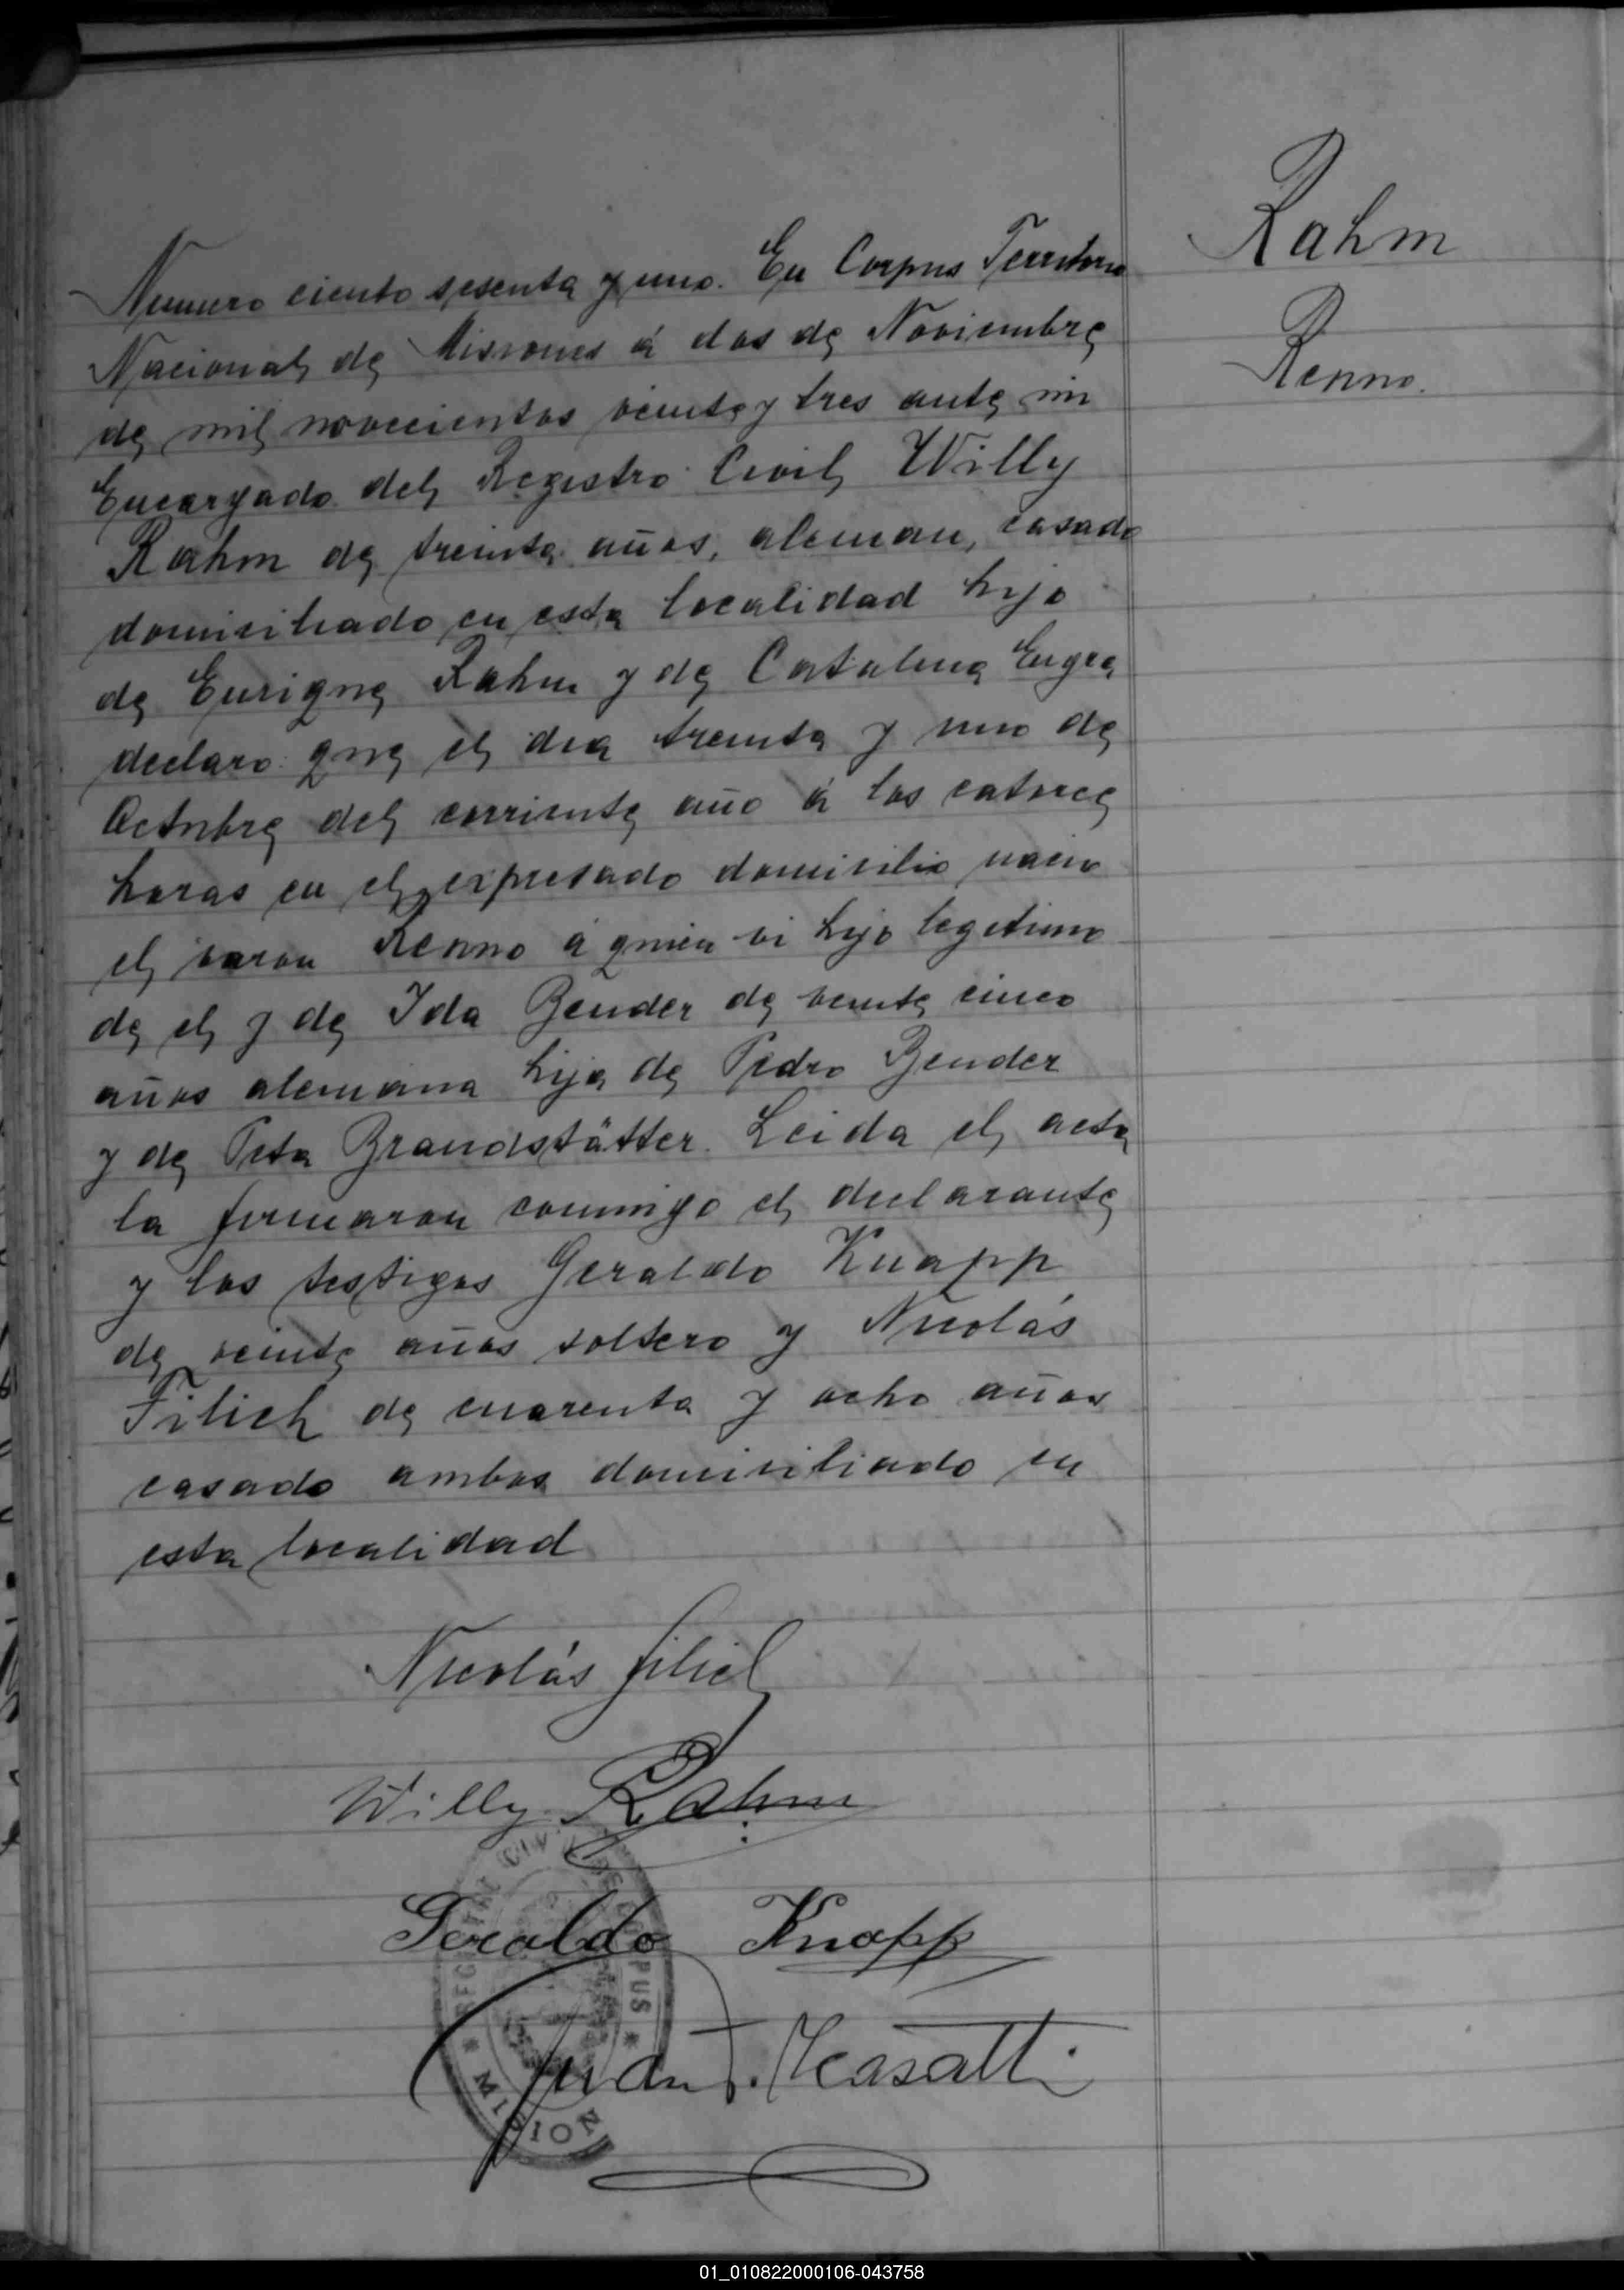 Rahm
Renno.
Numero ciento sesenta y uno. En Corpus Territorio
Nacional de Misiones á dos de Noviembre
de mil novecientos veinte y tres ante mi
Encargado del Registro Civil Willy
Rahm de treinta años, aleman, casado
domisiliado en esta localidad hijo
de Enrique Rahm y de Catalina
declaro que el dia treinta y uno de
Octubre del corriente año á las catorce
horas en el expresado domisilio nacio
el varon Renno á quien vi hijo legitimo
de el y de Ida Bender de veinte cinco
años alemana hija de Pedro Bender
y de Brandstätter. Leida el acta
la firmaron conmigo el declarante
y los testigos Geraldo Knapp
de veinte años soltero y Nicolás
Filich de cuarenta y ocho años
casado ambos domisiliado en
esta localidad
Nicolás Filich
Willy Rahm
Geraldo Knapp
Juan
CORPUS
MISION
01_010822000106-043758